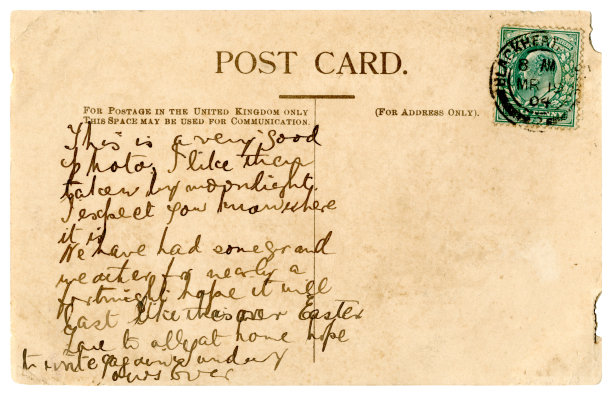 POST CARD.
FOR POSTAGE IN THE UNITED KINGDOM ONLY
THIS SPACE MAY BE USED FOR COMMUNICATION.
(FOR ADDRESS ONLY).
BLACKHEATH
8 AM
MR
04
This is a very good
photo, I like them
taken by moonlight.
I expect you know where
it is
We have had some grand
weather for nearly a
fortnight hope it will
last like this over Easter
Love to all at home hope
to write again Sunday